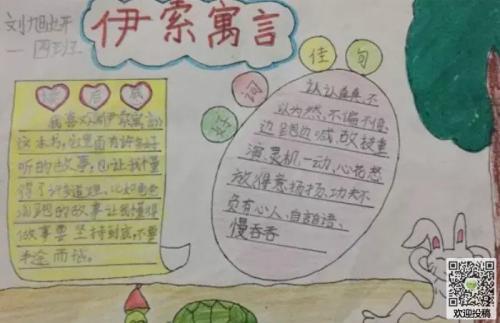 刘旭妍
一四班
伊索寓言
读后感
我喜欢《伊索寓言》
这本书,它里面有许多好
听的故事,也让我懂
得了许多道理,比如龟兔
赛跑的故事让我懂得
做事要坚持到底,不要
半途而话。
好词佳句
认认真真、不
以为然、不偏不倚
边跑边喊、故技重
演、灵机一动、心花怒
放、得意扬扬、功夫不
负有心人、自言自语、
慢吞吞
欢迎投稿